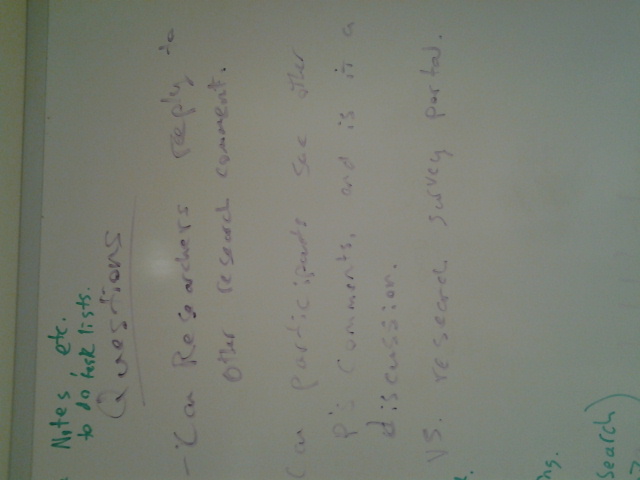 Notes, etc.
to do task lists.
Questions
- Can Researchers reeply to
other research comment.
Can participants see other
P's comments, and is it a
discussion.
VS. research survey portal.
ing.
search)